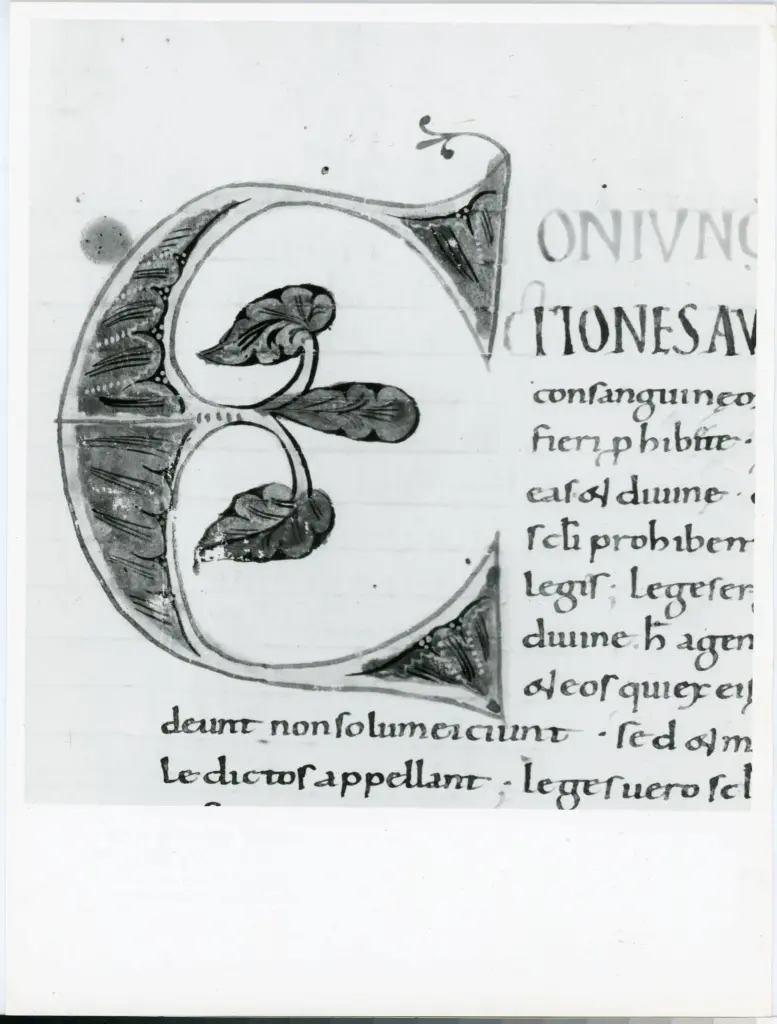 CONIVNC
TIONES AV
consanguineo
fieri phibite ·
eas & diuine ·
scłi prohiben
legis; Leges er
diuine h̄ agen
& eos qui ex
deunt non solum eiciunt · sed & m
ledictos appellant ; leges uero scł